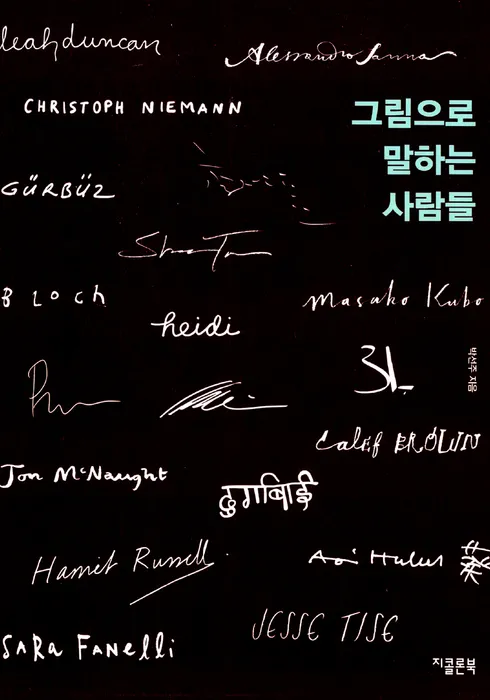 leah duncan
Alessandro Sanna
CHRISTOPH NIEMANN
그림으로
말하는
사람들
GÜRBÜZ
BLOCH
Masako Kubo
heidi
박선주 지음
Calef BROWN
Jon McNaught
दुर्गाबाई
Harriet Russell
JESSE TISE
SARa FANELLi
지콜론북